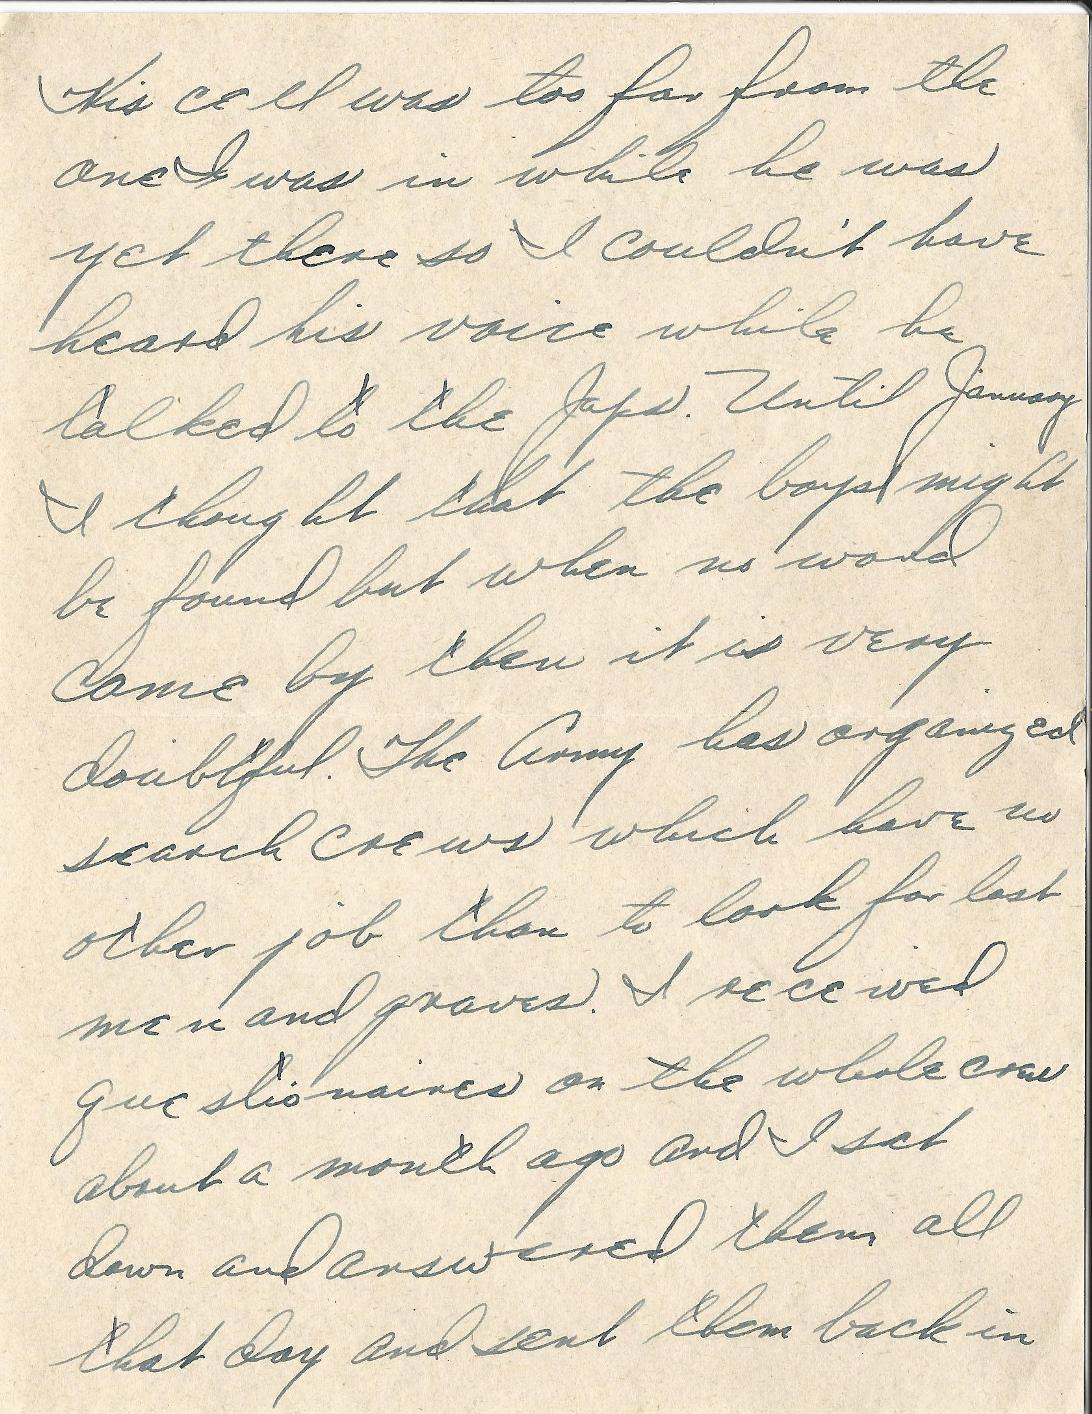 His cell was too far from the
one I was in while he was
yet there so I couldn't have
heard his voice while he
talked to the Japs. Until January
I thought that the boys might
be found but when no word
came by then it is very
doubtful. The Army has organized
search crews which have no
other job than to look for lost
men and graves. I received
questionaires on the whole crew
about a month ago and I sat
down and answered them all
that day and sent them back in